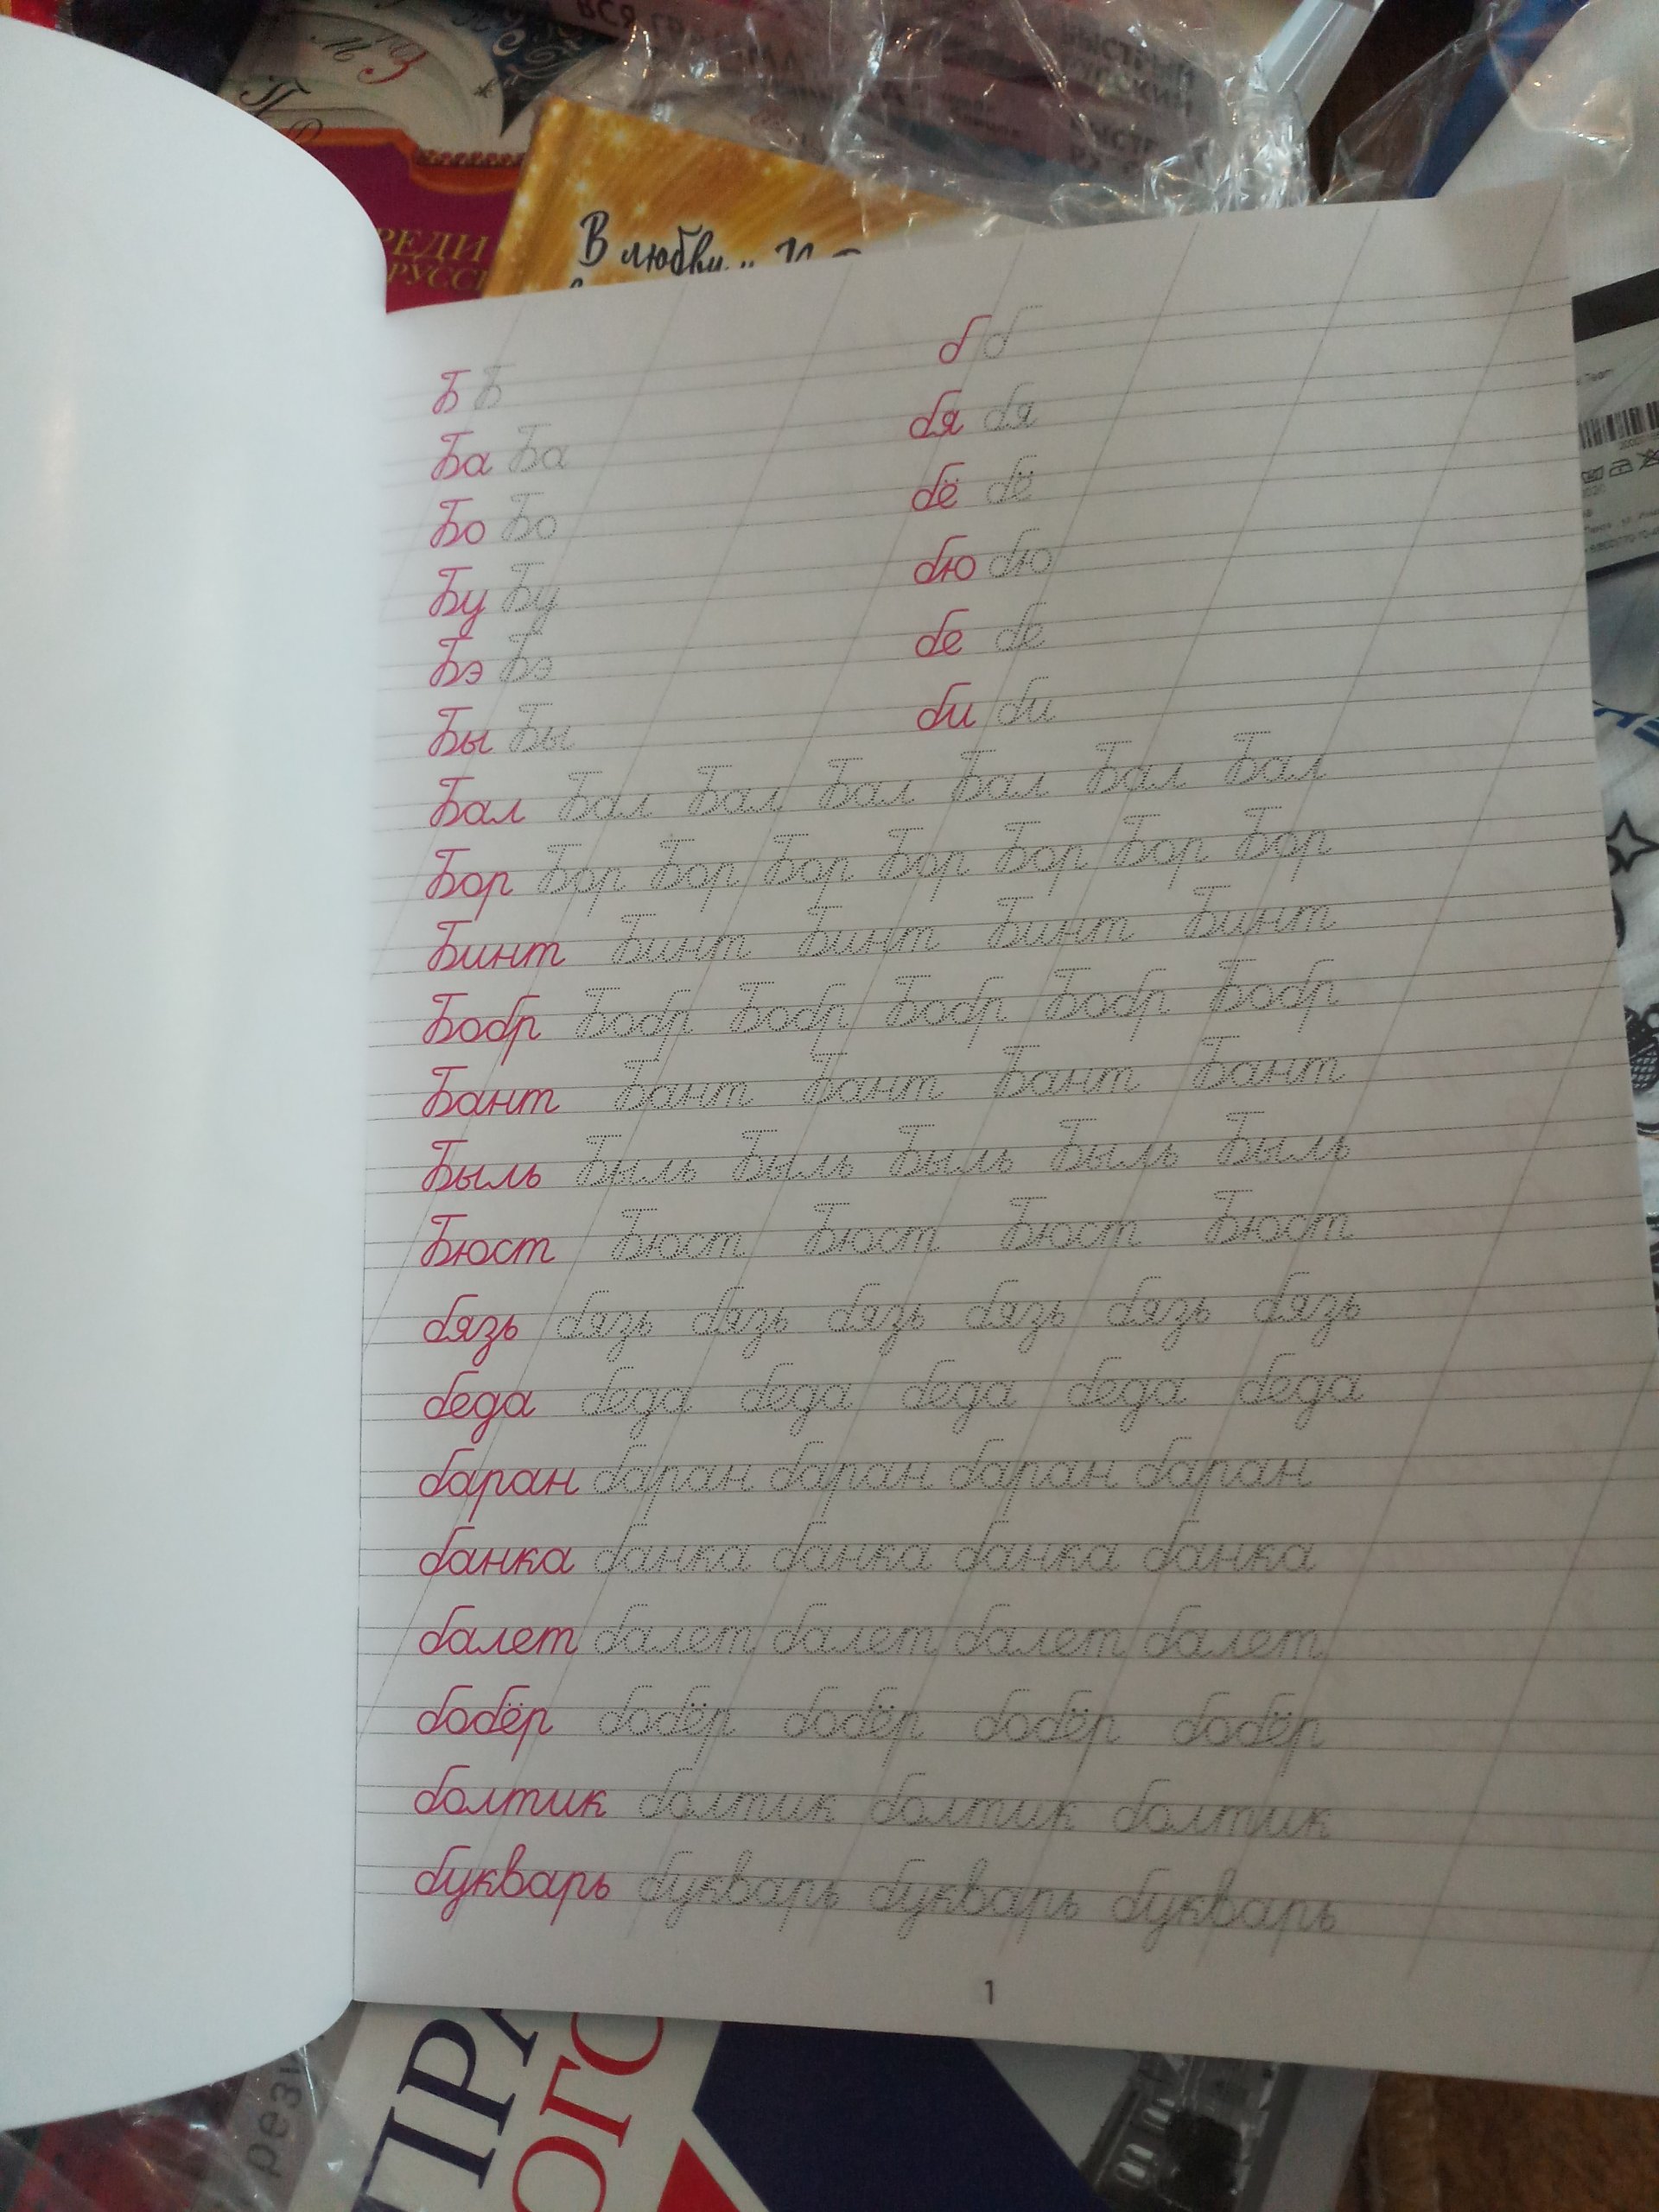 ВСЯ
МЗ
РЕДИ
РУССК
В любви и
Б Б
б б
Ба Ба
бя бя
Бо Бо
бё бё
Бу Бу
бю бю
Бэ Бэ
бе бе
Бы Бы
би би
Бал Бал Бал Бал Бал Бал Бал
Бор Бор Бор Бор Бор Бор Бор Бор
Бинт Бинт Бинт Бинт Бинт
Бобр Бобр Бобр Бобр Бобр Бобр
Бант Бант Бант Бант Бант
Быль Быль Быль Быль Быль Быль
Бюст Бюст Бюст Бюст Бюст
бязь бязь бязь бязь бязь бязь бязь
беда беда беда беда беда беда
баран баран баран баран баран
банка банка банка банка банка
балет балет балет балет балет
бобёр бобёр бобёр бобёр бобёр
болтик болтик болтик болтик
букварь букварь букварь букварь
1
ПРА
ОГО
рези